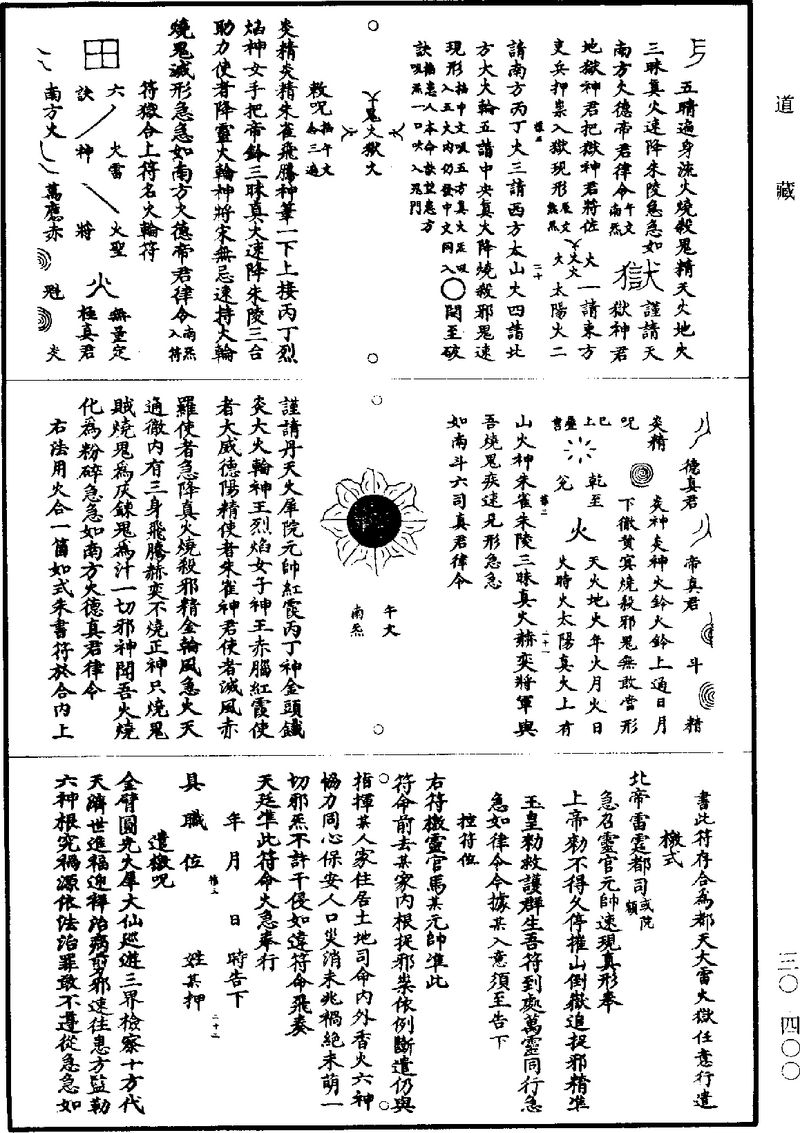 道藏
五晴遍身流火燒殺鬼精天火地火
三昧真火速降朱陵急急如
南方火德帝君律令午文南炁
獄
謹請天
獄神君
地獄神君把獄神君將佐
吏兵押祟入獄現形辰文
火火火
火一請東方
火太陽火二
請南方丙丁火三請西方太山火四請北
方大火輪五請中央真火降燒殺邪鬼速
現形
○閇至破
鬼火獄文
敕呪
炎精炎精朱雀飛騰神筆一下上接丙丁烈
焰神女手把帝鈴三昧真火速降朱陵三台
助力使者降靈火輪神將宋無忌速持火輪
燒鬼滅形急急如南方火德帝君律令南炁入符
符獄合上符名火輪符
六
火雷
火聖
無量定
訣
神
將
火
極真君
田
南方火
萬應赤
魁
炎
德真君
帝真君
斗
精
炎精
炎神炎神火鈴火鈴上通日月
呪
下徹黃冥燒殺邪鬼無敢當形
巳上
乾至
天火地火年火月火日
兊
火
火時火太陽真火上有
山火神朱雀朱陵三昧真火赫奕將軍與
吾燒鬼疾速見形急急
如南斗六司真君律令
午文
南炁
謹請丹天火犀院元帥紅霞丙丁神金頭鐵
炎大火輪神王烈焰女子神王赤腦紅霞使
者大威德陽精使者朱雀神君使者滅風赤
羅使者急降真火燒殺邪精金輪風急火天
通徹内有三身飛騰赫奕不燒正神只燒鬼
賊燒鬼為灰鍊鬼為汁一切邪神聞吾火燒
化為粉碎急急如南方火德真君律令
右法用火合一箇如式朱書符於合内上
書此符存合為都天大雷火獄任意行遣
檄式
北帝雷霆都司或院額
急召靈官元帥速現真形奉
上帝勑不得久停摧山倒嶽追捉邪精準
玉皇勑救護群生吾符到處萬靈同行急
急如律令令據某入意須至告下
控符位
右符檄靈官馬某元帥準此
符命前去某家内根捉邪祟依例斷遣仍與
指揮某人家住居土地司命内外香火六神
恊力同心保安人口災消未兆禍絶未萌一
切邪炁不許干侵如違符命飛奏
天廷準此符命火急奉行
年月日時告下
具職位
姓某押
遣檄呪
金臂圓光火犀大仙巡遊三界檢察十方代
天濟世進福迎祥治病剪邪速往患方監勒
六神根究禍源依法治罪敢不遵從急急如
三〇
四〇〇